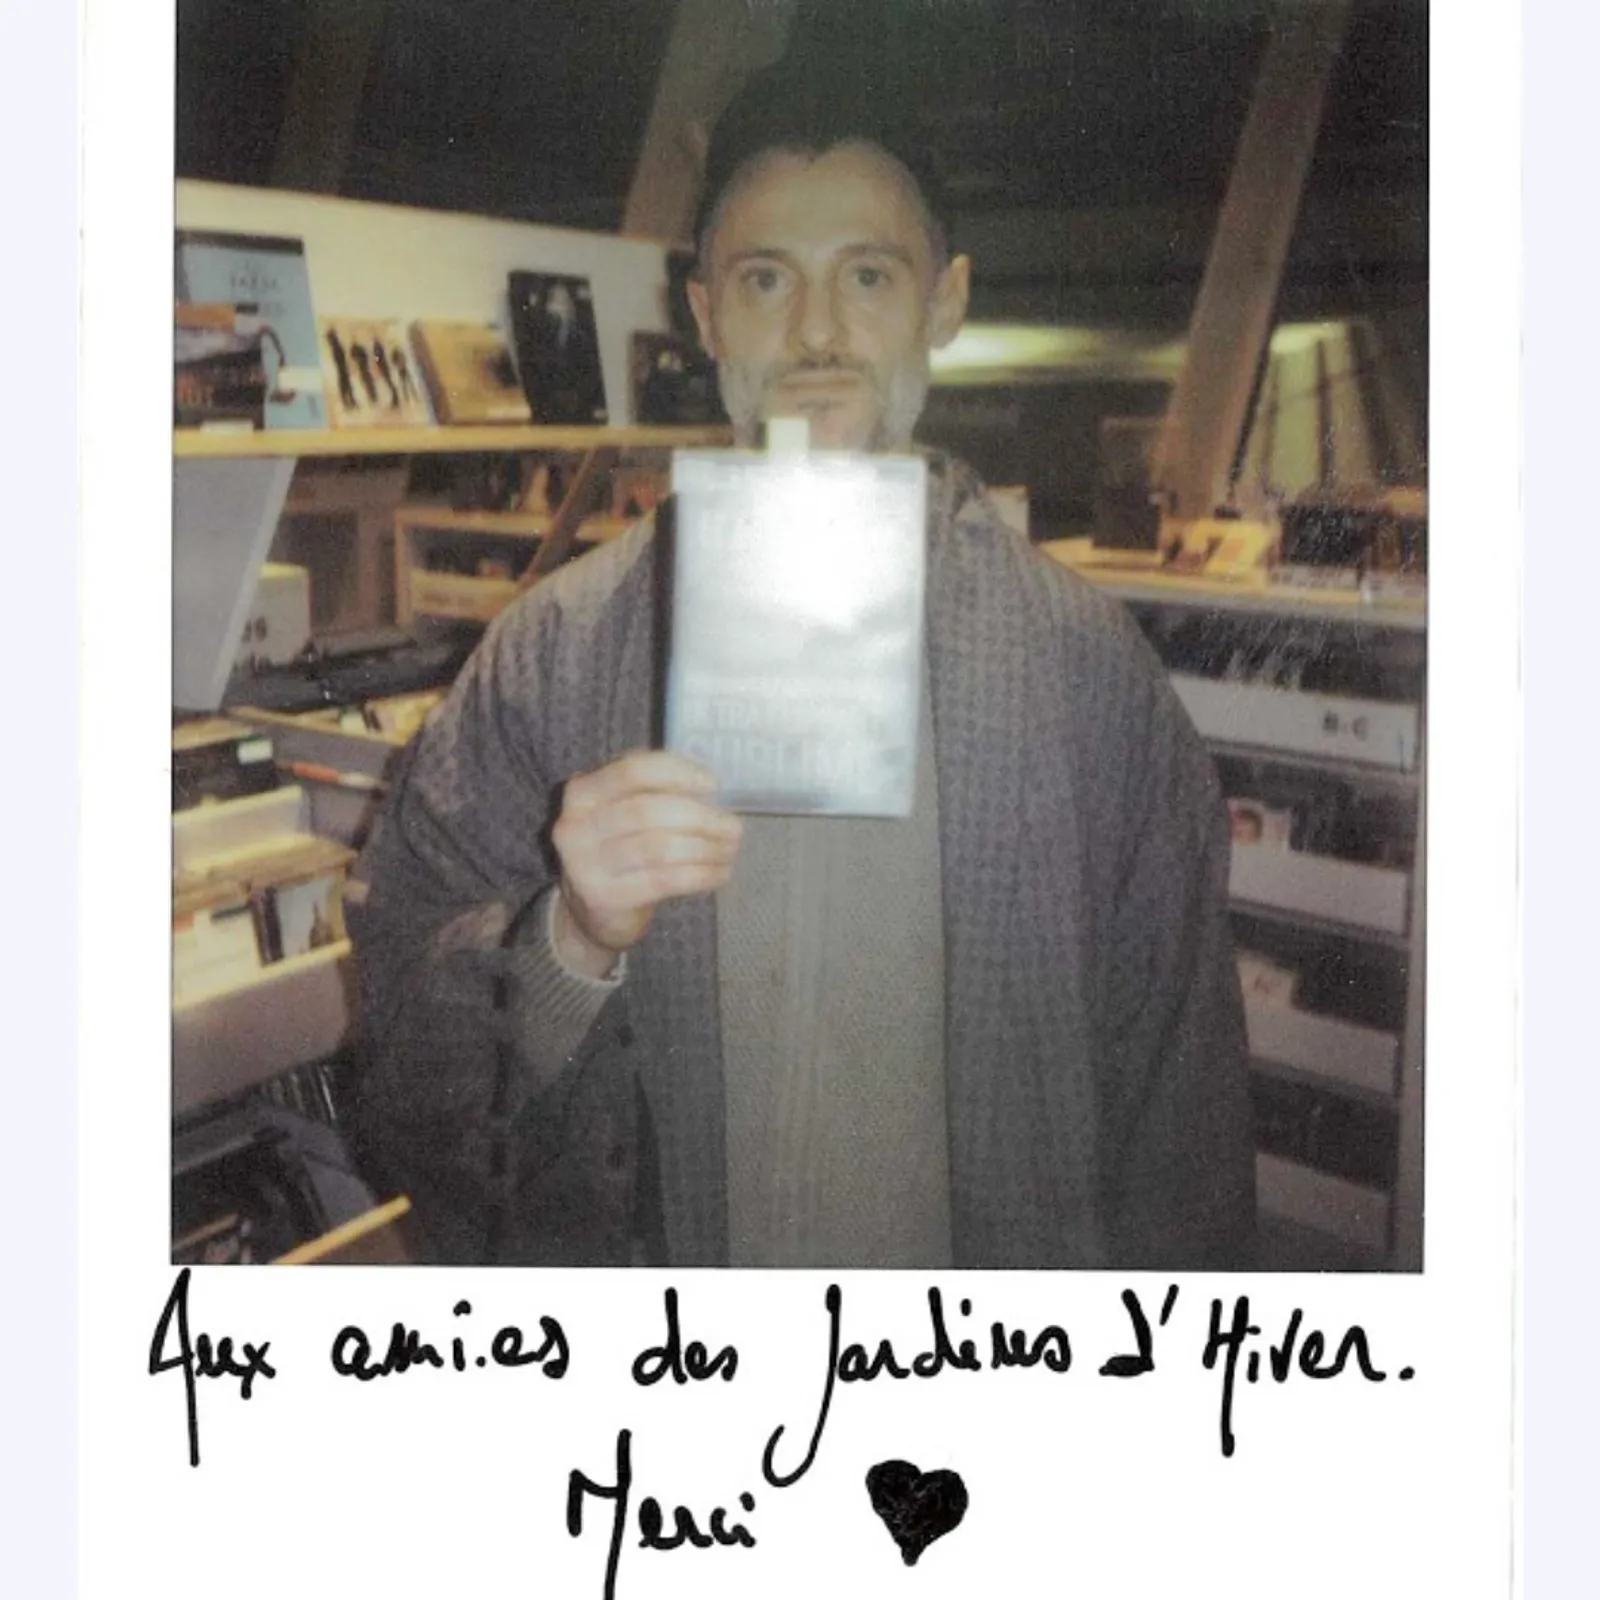 B-C
SUBLIME
Aux ami.es des Jardins d'Hiver.
Merci ♥